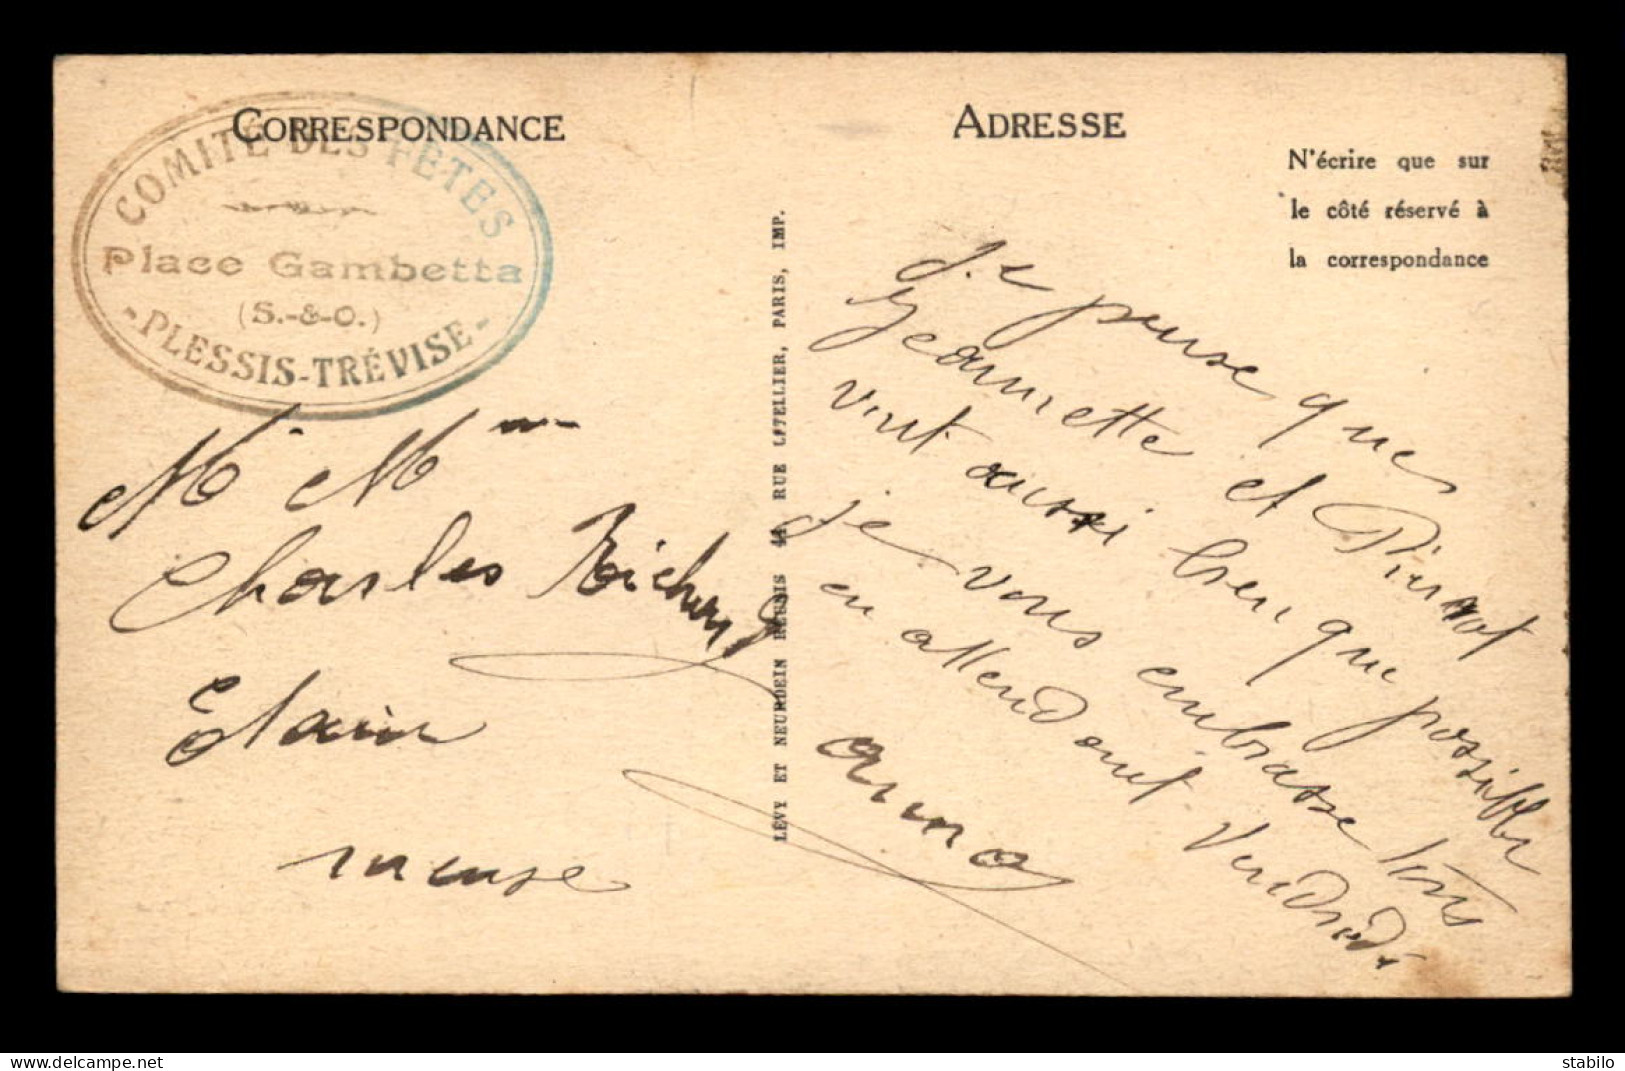 CORRESPONDANCE
COMITÉ DES FÊTES
Place Gambetta
(S.-&-O.)
-PLESSIS-TRÉVISE-
M. Mme
Charles
Etain
meuse
LÉVY ET NEURDEIN RÉUNIS 44 RUE LETELLIER, PARIS, IMP.
ADRESSE
N'écrire que sur
le côté réservé à
la correspondance
Je pense que
Jeannette et Pierrot
vont aussi bien que possible
je vous embrasse tous
en attendant Vendredi
Anna
delcampe.net
stabilo